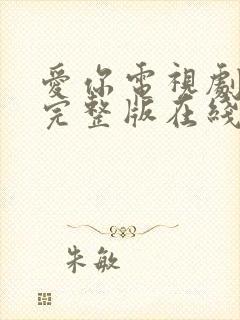 愛你電視劇
完整版在綫
朱敏